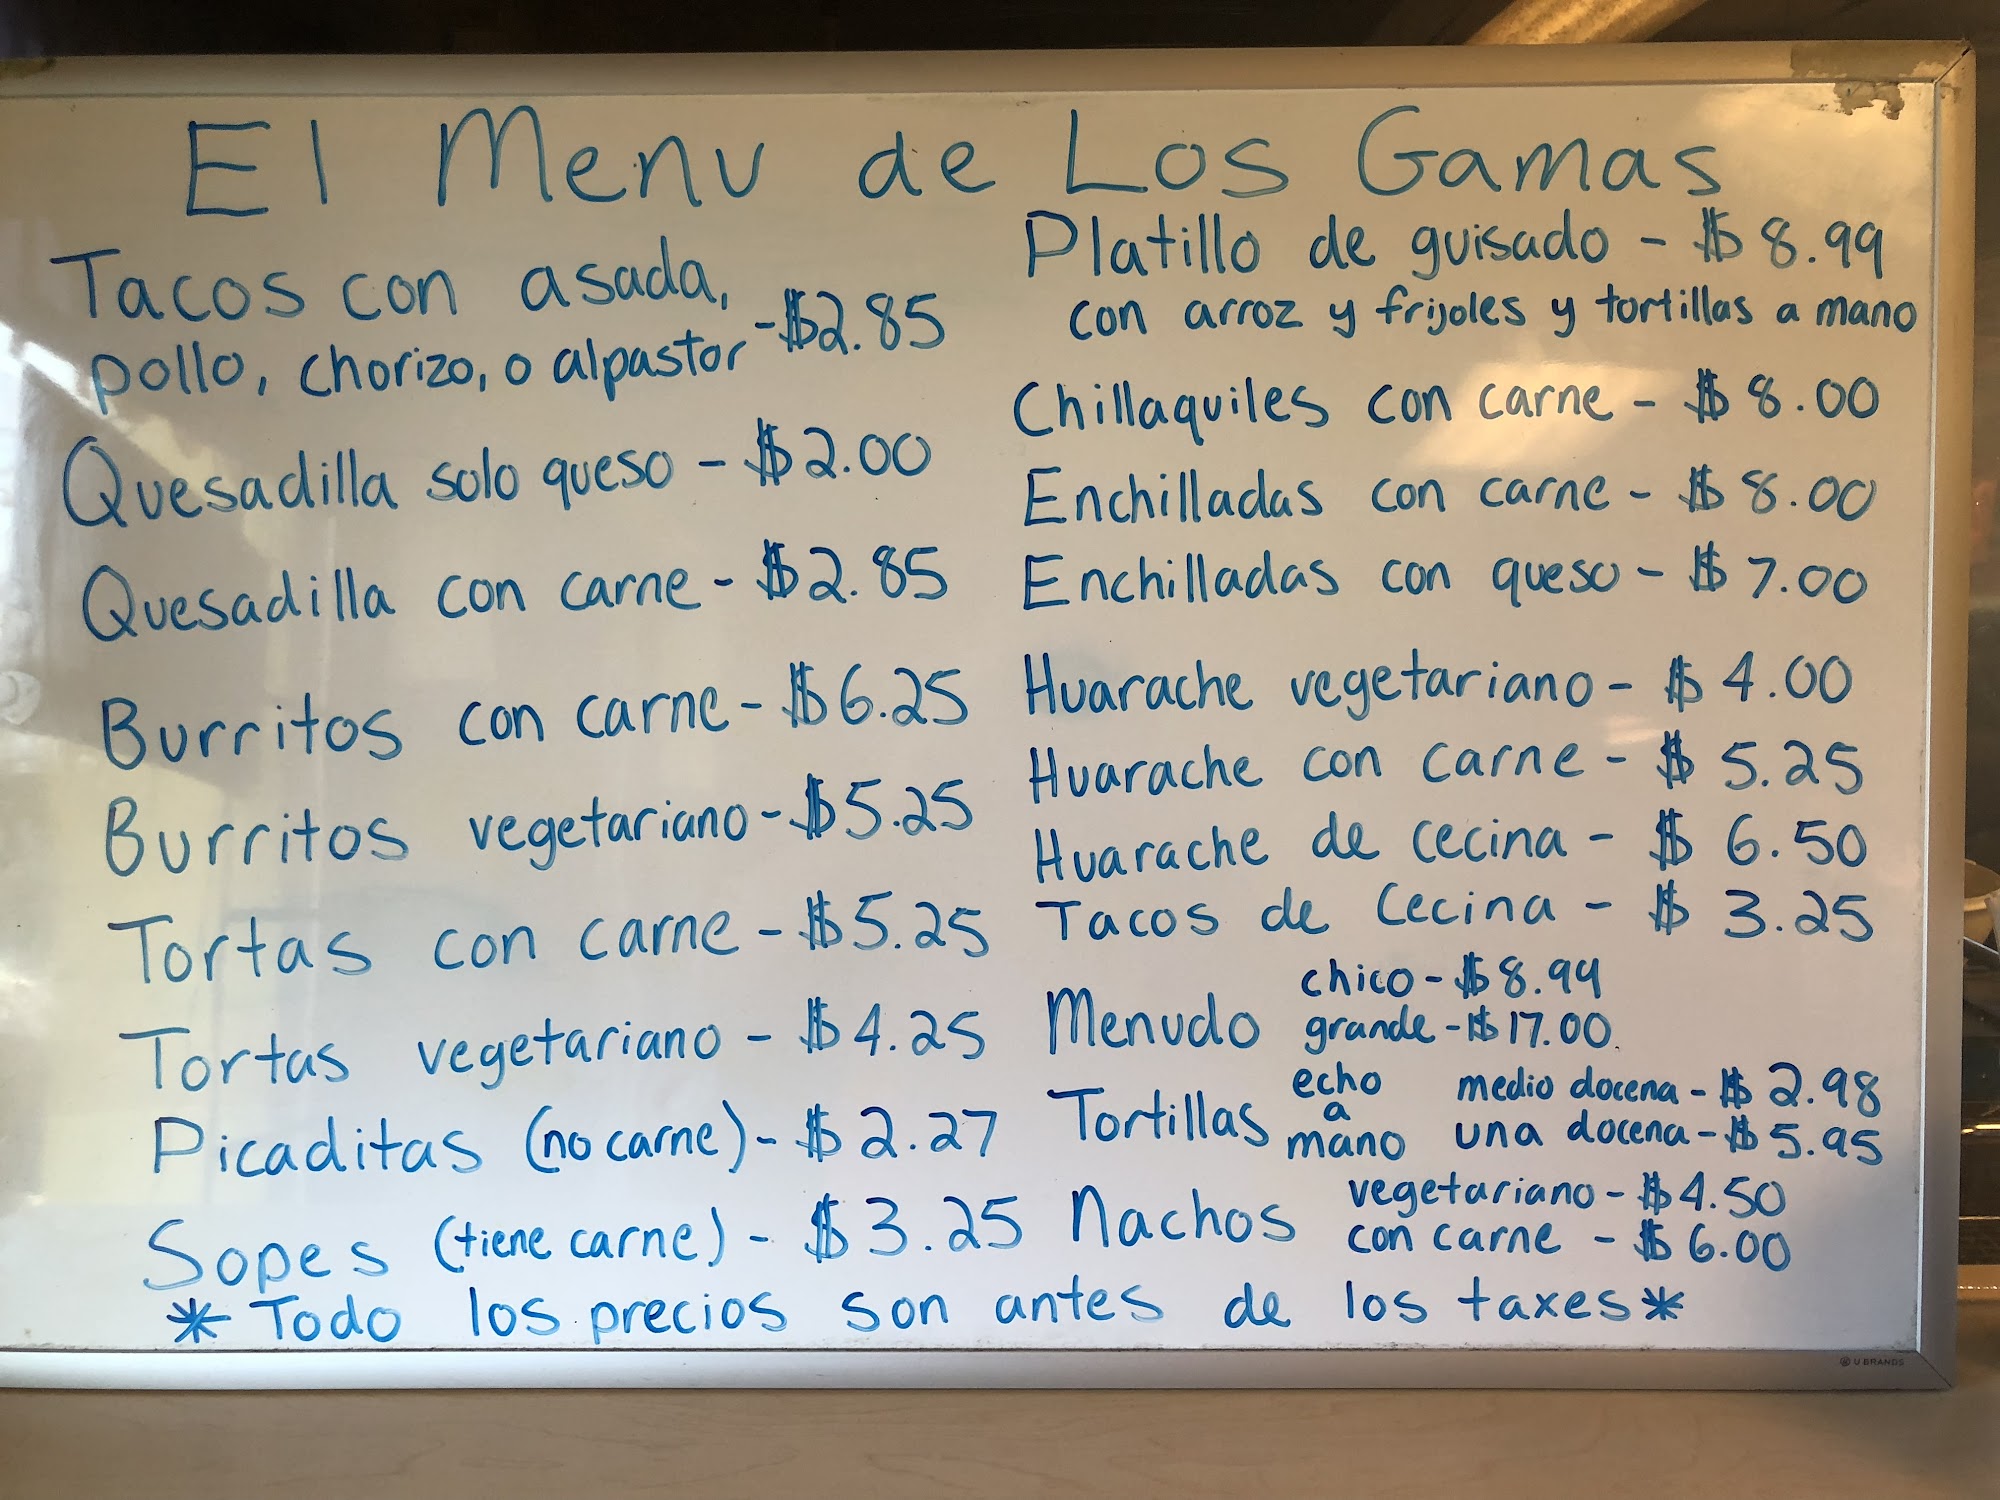 El Menu de Los Gamas
Tacos con asada,
pollo, chorizo, o alpastor - $2.85
Quesadilla solo queso - $2.00
Quesadilla con carne - $2.85
Burritos con carne - $6.25
Burritos vegetariano - $5.25
Tortas con carne - $5.25
Tortas vegetariano - $4.25
Picaditas (no carne) - $2.27
Sopes (tiene carne) - $3.25
Platillo de guisado - $8.99
con arroz y frijoles y tortillas a mano
Chillaquiles con carne - $8.00
Enchilladas con carne - $8.00
Enchilladas con queso - $7.00
Huarache vegetariano - $4.00
Huarache con carne - $5.25
Huarache de cecina - $6.50
Tacos de Cecina - $3.25
Menudo chico - $8.99
grande - $17.00
Tortillas echo a mano medio docena - $2.98
una docena - $5.95
Nachos vegetariano - $4.50
con carne - $6.00
*Todo los precios son antes de los taxes*
U BRANDS